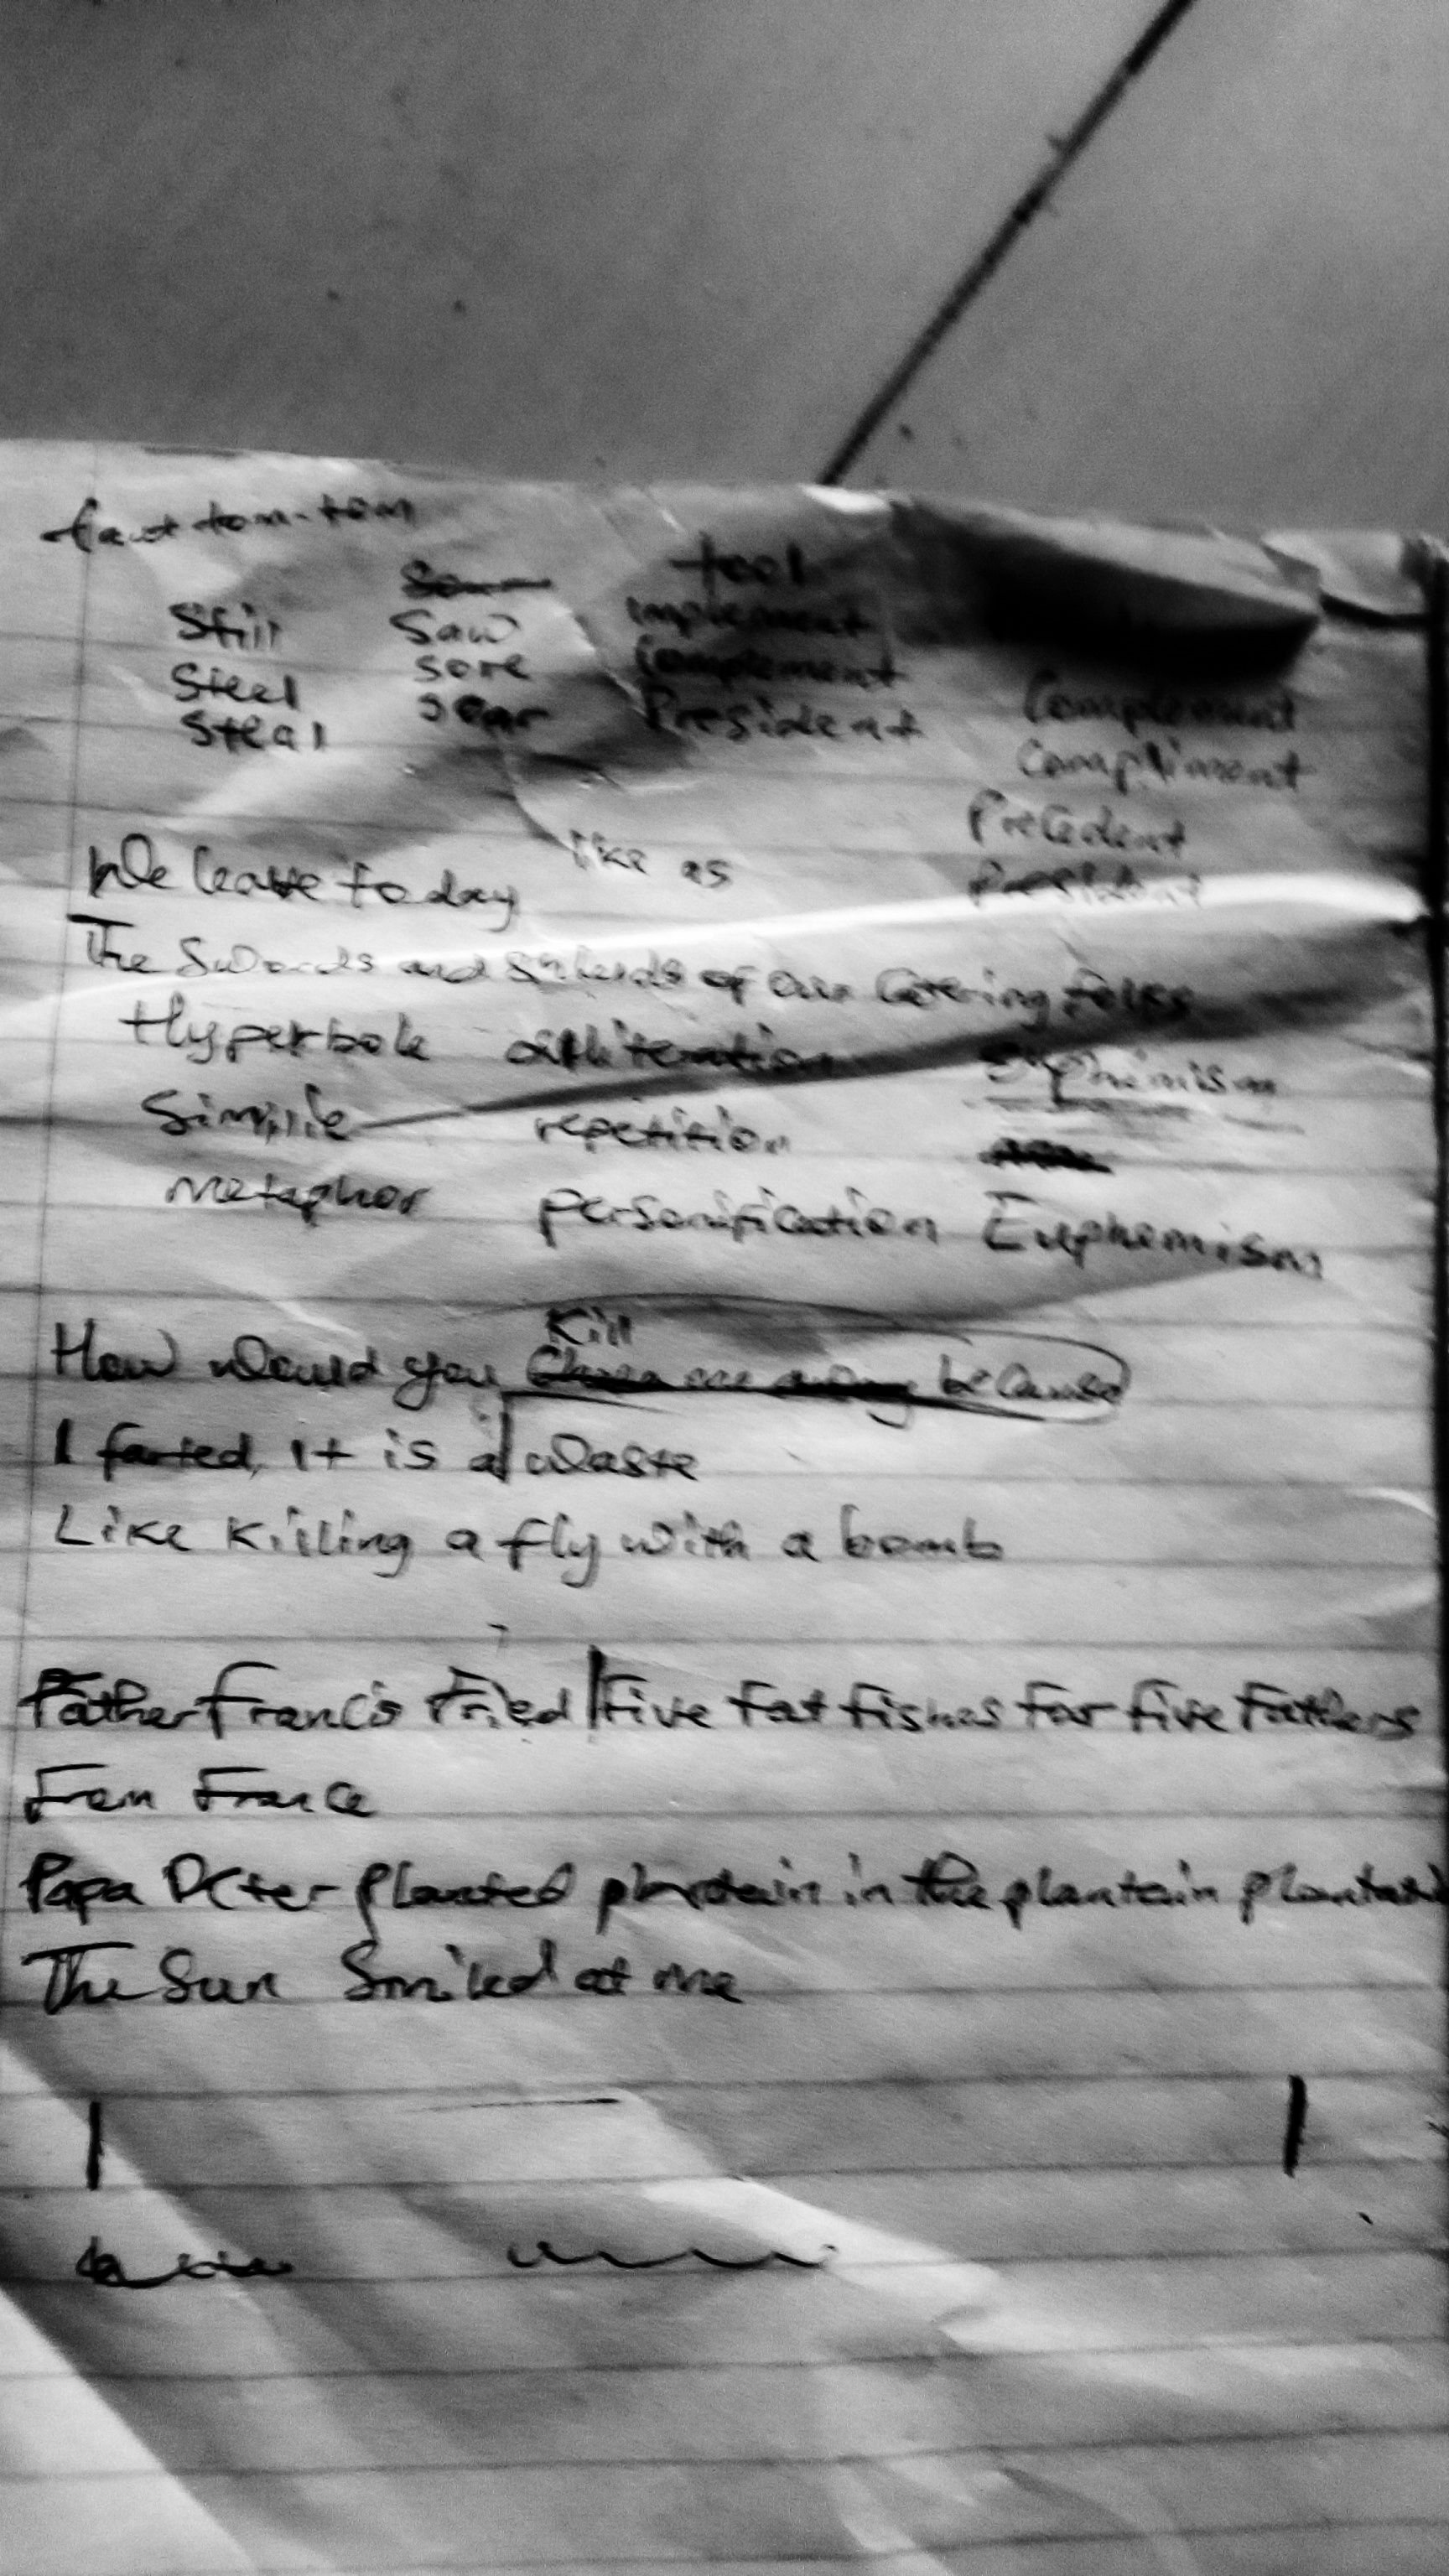 tool
Still Saw implement
Steel sore Complement
Steal soar President Complement
Compliment
Precedent
We leave today like as President
The Swords and Shields of our Catering folks
Hyperbole alliteration euphimism
Simile repetition
Metaphor personification Euphemism
Kill
How would you because
I farted. It is a waste
Like killing a fly with a bomb
Father Francis Fried Five Fat fishes For five Fathers
From France
Papa Peter planted plantain in the plantain
The Sun Smiled at me